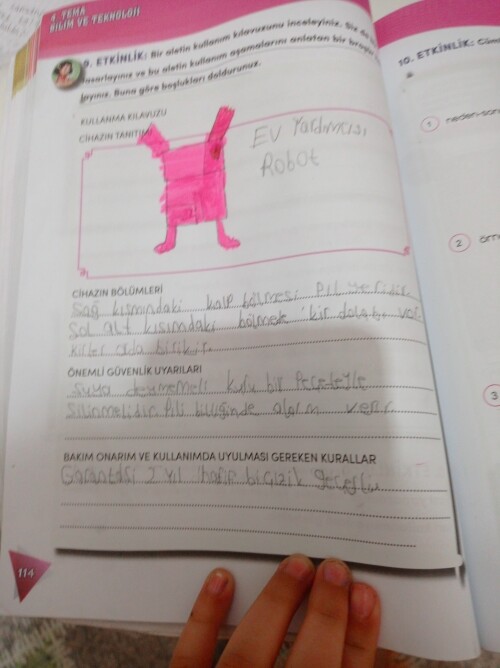 4. TEMA
BİLİM VE TEKNOLOJİ
9. ETKİNLİK: Bir aletin kullanım kılavuzunu inceleyiniz. Siz de bir
tasarlayınız ve bu aletin kullanım aşamalarını anlatan bir broşür
layınız. Buna göre boşlukları doldurunuz.
KULLANMA KILAVUZU
CİHAZIN TANITIMI
Ev Yardımcısı
Robot
CİHAZIN BÖLÜMLERİ
Sağ kısmındaki kalp bölmesi Pil yeridir.
Sol alt kısımdaki bölmek kir dolabı var
kirler orda birikir.
ÖNEMLİ GÜVENLİK UYARILARI
Suya deymemeli kuru bir Peçeteyle
Silinmelidir. Pili bittiğinde alarm verir.
BAKIM ONARIM VE KULLANIMDA UYULMASI GEREKEN KURALLAR
Garantisi 2 yıl
114
10. ETKİNLİK:
1 neden-son
2
3